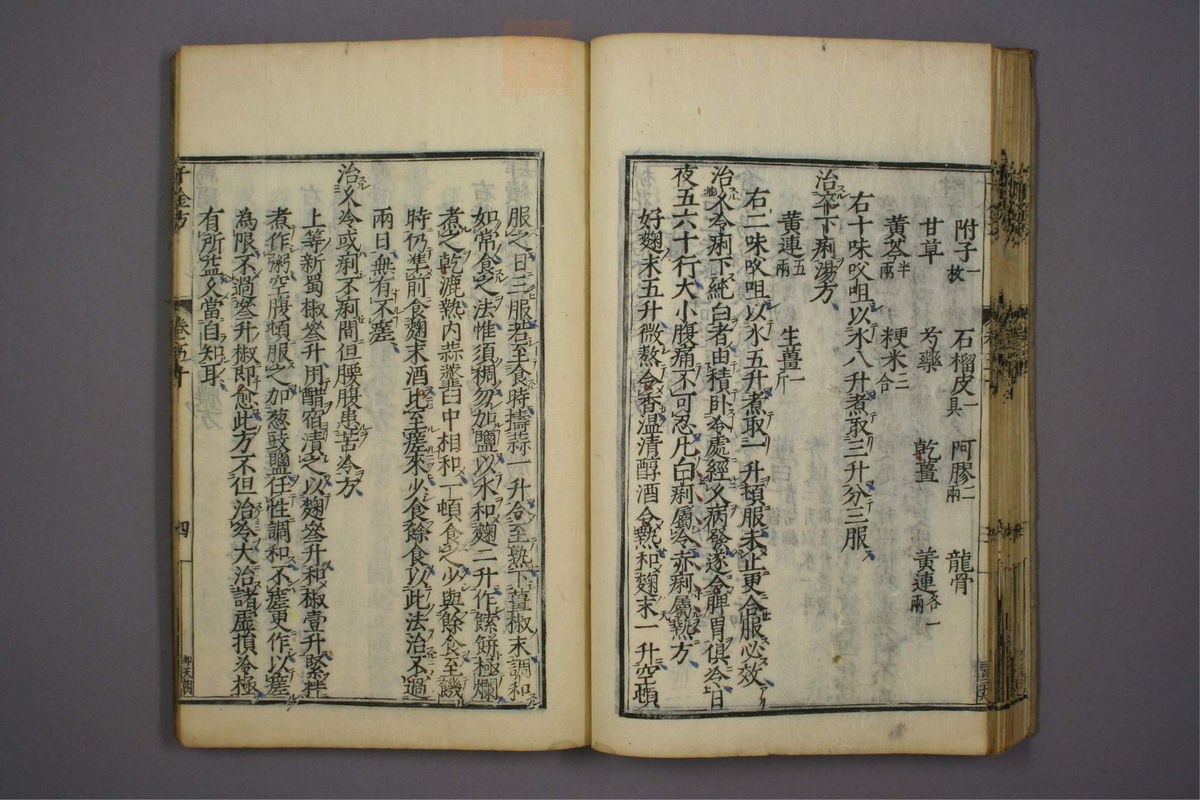 附子一枚 石榴皮一具 阿膠二兩 龍骨
甘草 芍藥 乾薑 黃連各一兩
黃芩半兩 粳米三合
右十味㕮咀以水八升煮取三升分三服
治卒下痢湯方
黃連五兩 生薑一斤
右二味㕮咀以水五升煮取一升頓服未止更合服必效
治久冷痢下純白者由積臥冷處經久病發遂令脾胃俱冷日
夜五六十行大小腹痛不可忍凡白痢屬冷赤痢屬熱方
好麴末五升微熬令香溫清醇酒令熱和麴末一升空頓
服之日三服若至食時擣蒜一升令至熟下薑椒末調和
如常食之法惟須稠勿加鹽以水和麴二升作餻餅極爛
煮之乾漉熱內蒜虀臼中相和一頓食之少與餘食至饑
時仍準前食麴末酒比至瘥來少食餘食以此法治不過
兩日無有不瘥
治久冷或痢不痢間但腰腹患苦冷方
上等新蜀椒叄升用醋宿漬之以麴叄升和椒壹升緊拌
煮作粥空腹頓服之加葱豉鹽任性調和不瘥更作以瘥
為限不過叄升椒即愈此方不但治冷大治諸虛損冷極
有所益久當自知耳
千金方 卷五十 四